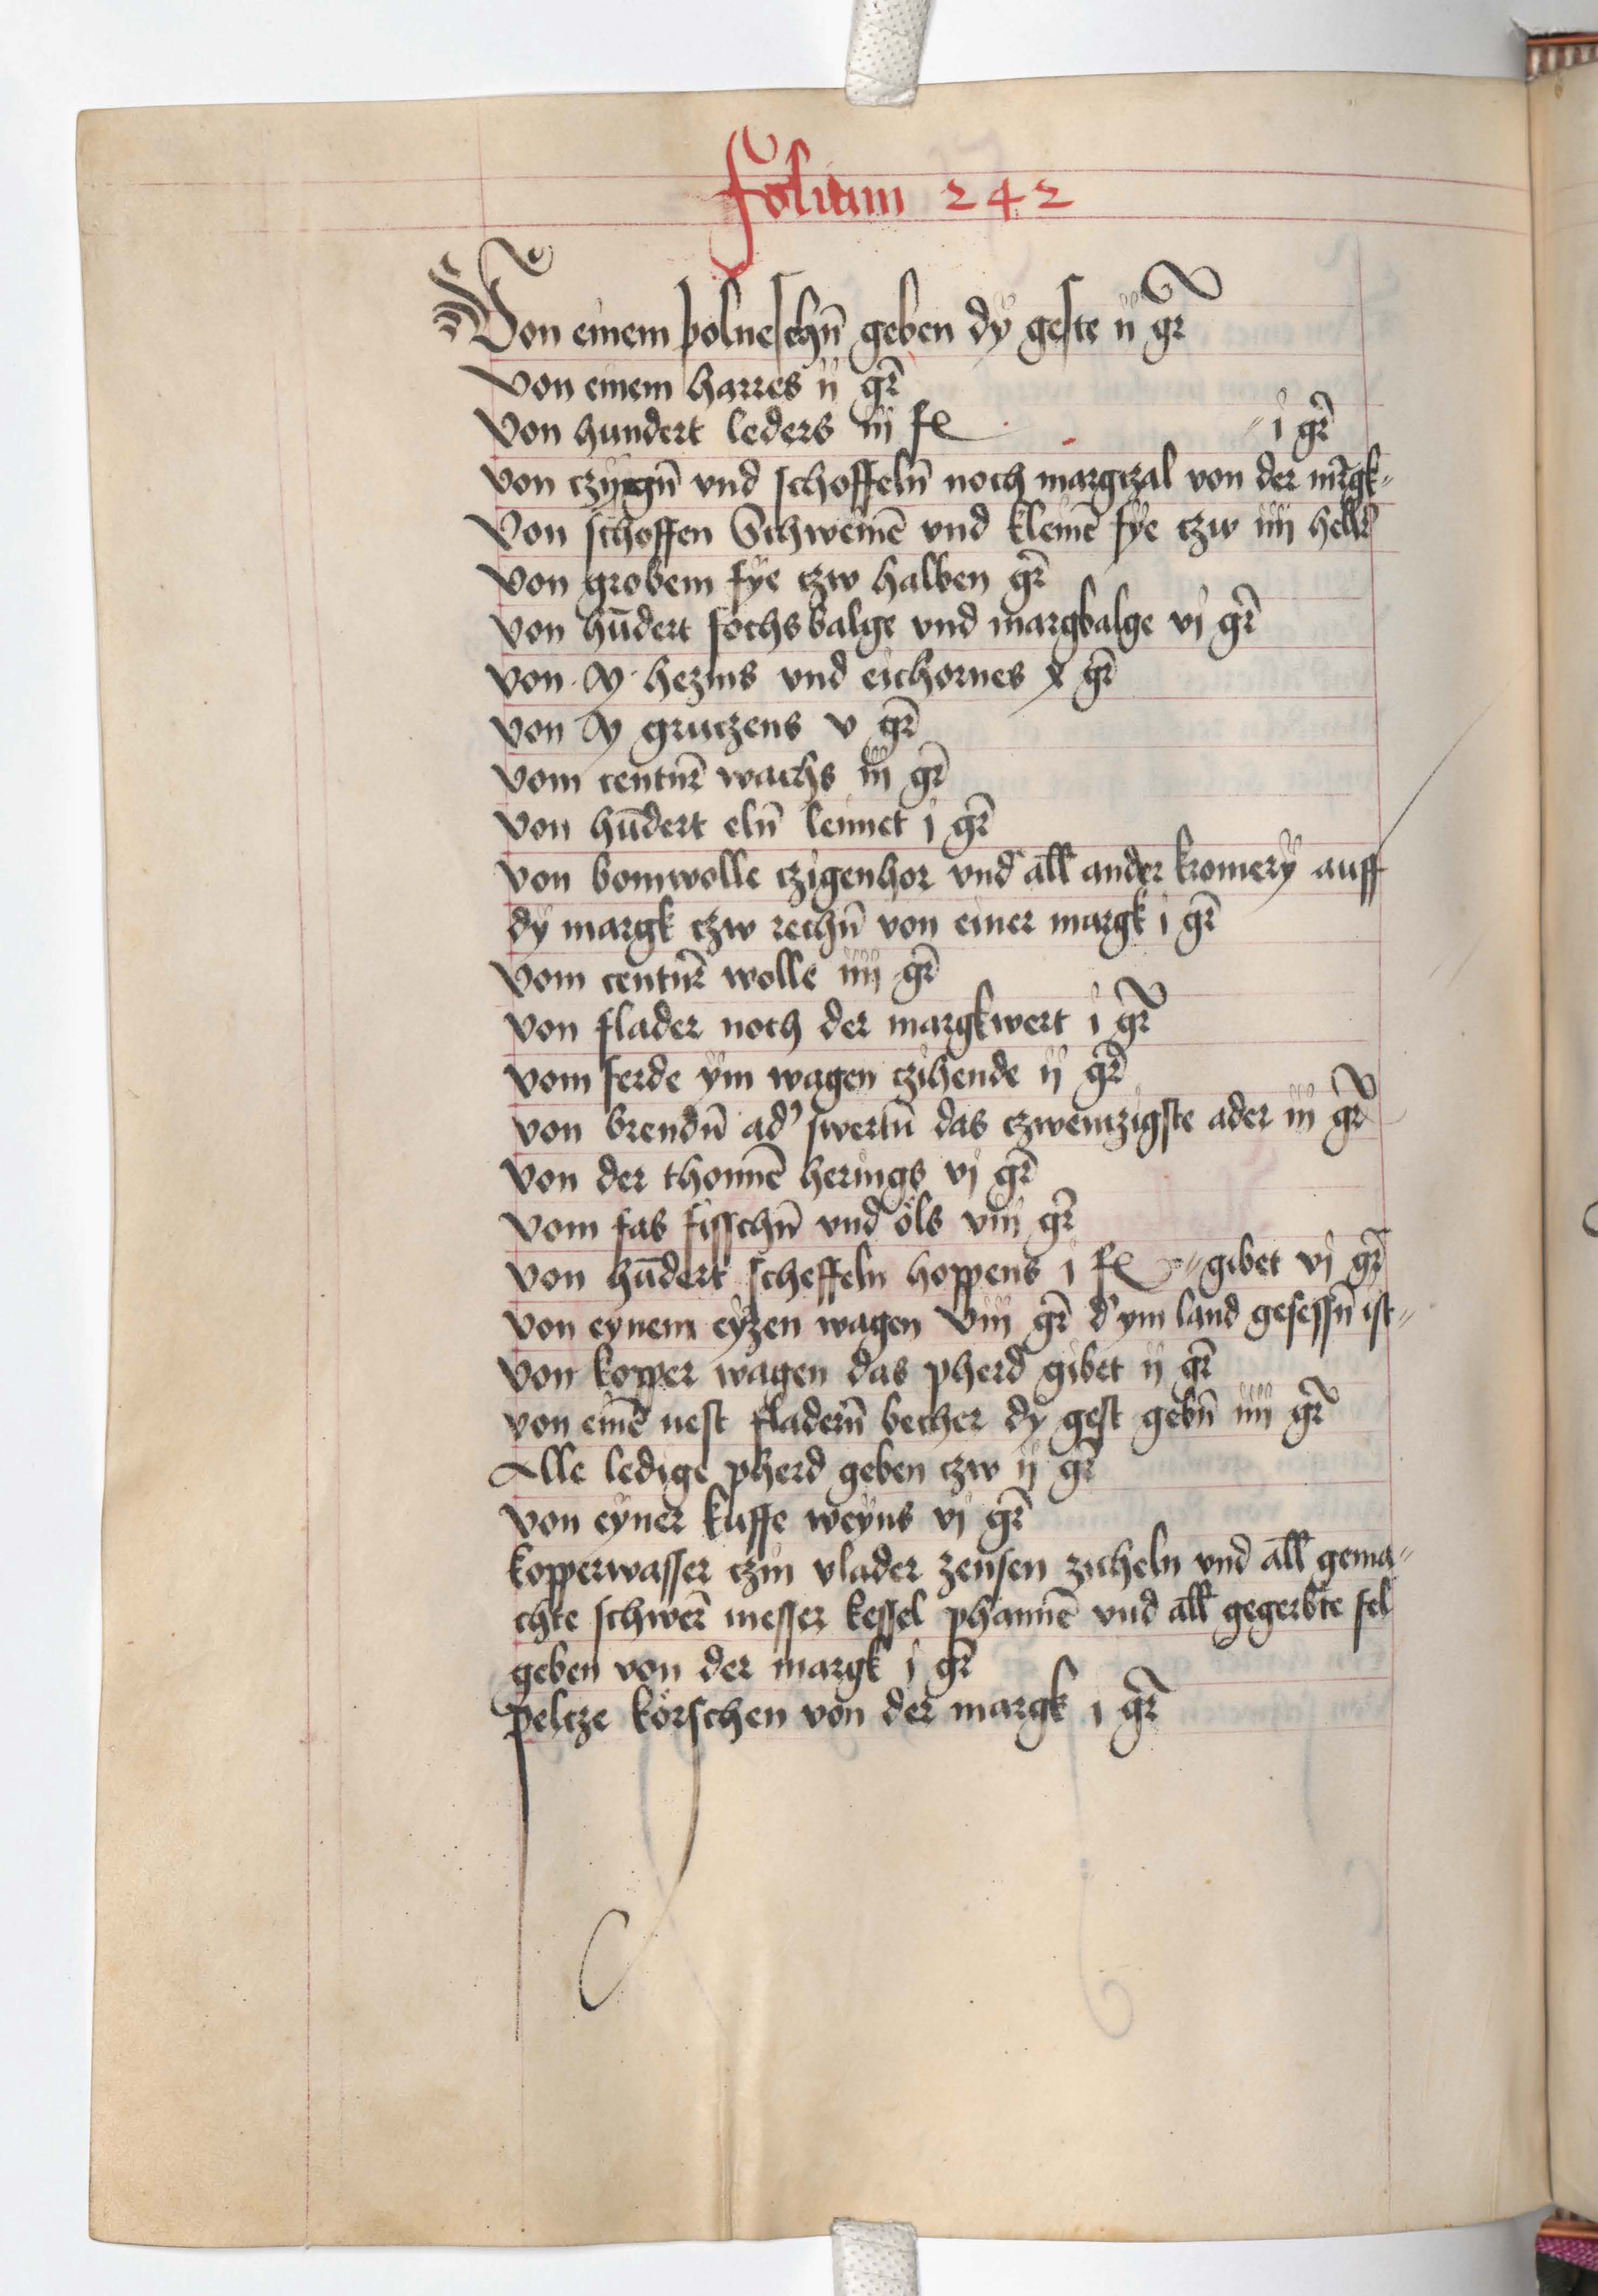 Folium 242
Von einem polneschn̄ geben dÿ geste ij gr̄
Von einem harres ij gr̄
Von hundert leders iij
i gr̄
von czygn̄ vnd schoffeln̄ noch margczal von der mr̄gk
Von schoffen Schweinē vnd kleinē fye czw iiij hell
von grobem fÿe czw halben gr̄
von hūdert fochsbalge vnd margbalge vj gr̄
von hezms vnd eichornes x gr̄
von gruczens v gr̄
vom centnr̄ wachs iij gr̄
von hūdert eln̄ leinet j gr̄
von bomwolle czigenhor vnd all ander kromerÿ auff
dÿ margk czw rechn̄ von einer margk i gr̄
vom centnr̄ wolle iiij gr̄
von flader noch der margkwert i gr̄
vom ferde ÿm wagen czihende ij gr̄
von brendn̄ ad' swertn̄ das czwenczigste ader iij gr̄
von der thonnē herings vj gr̄
vom fas fisschn̄ vnd öls viij gr̄
von hūdert scheffeln hoppens j gibet vj gr̄
von eynem eÿzen wagen viij gr̄ d' ym land gesessn̄ ist
von kopper wagen das pherd gibet ij gr̄
von einē nest fladern̄ becher dÿ gest gebn̄ iiij gr̄
Alle ledige pherd geben czw ij gr̄
von eÿner kuffe weyns vj gr̄
kopperwasser czin vlader zensen zicheln vnd all gema
chte schwer̄ messer kessel phannē vnd all gegerbte fel
geben von der margk j gr̄
pelcze körschen von der margk i gr̄